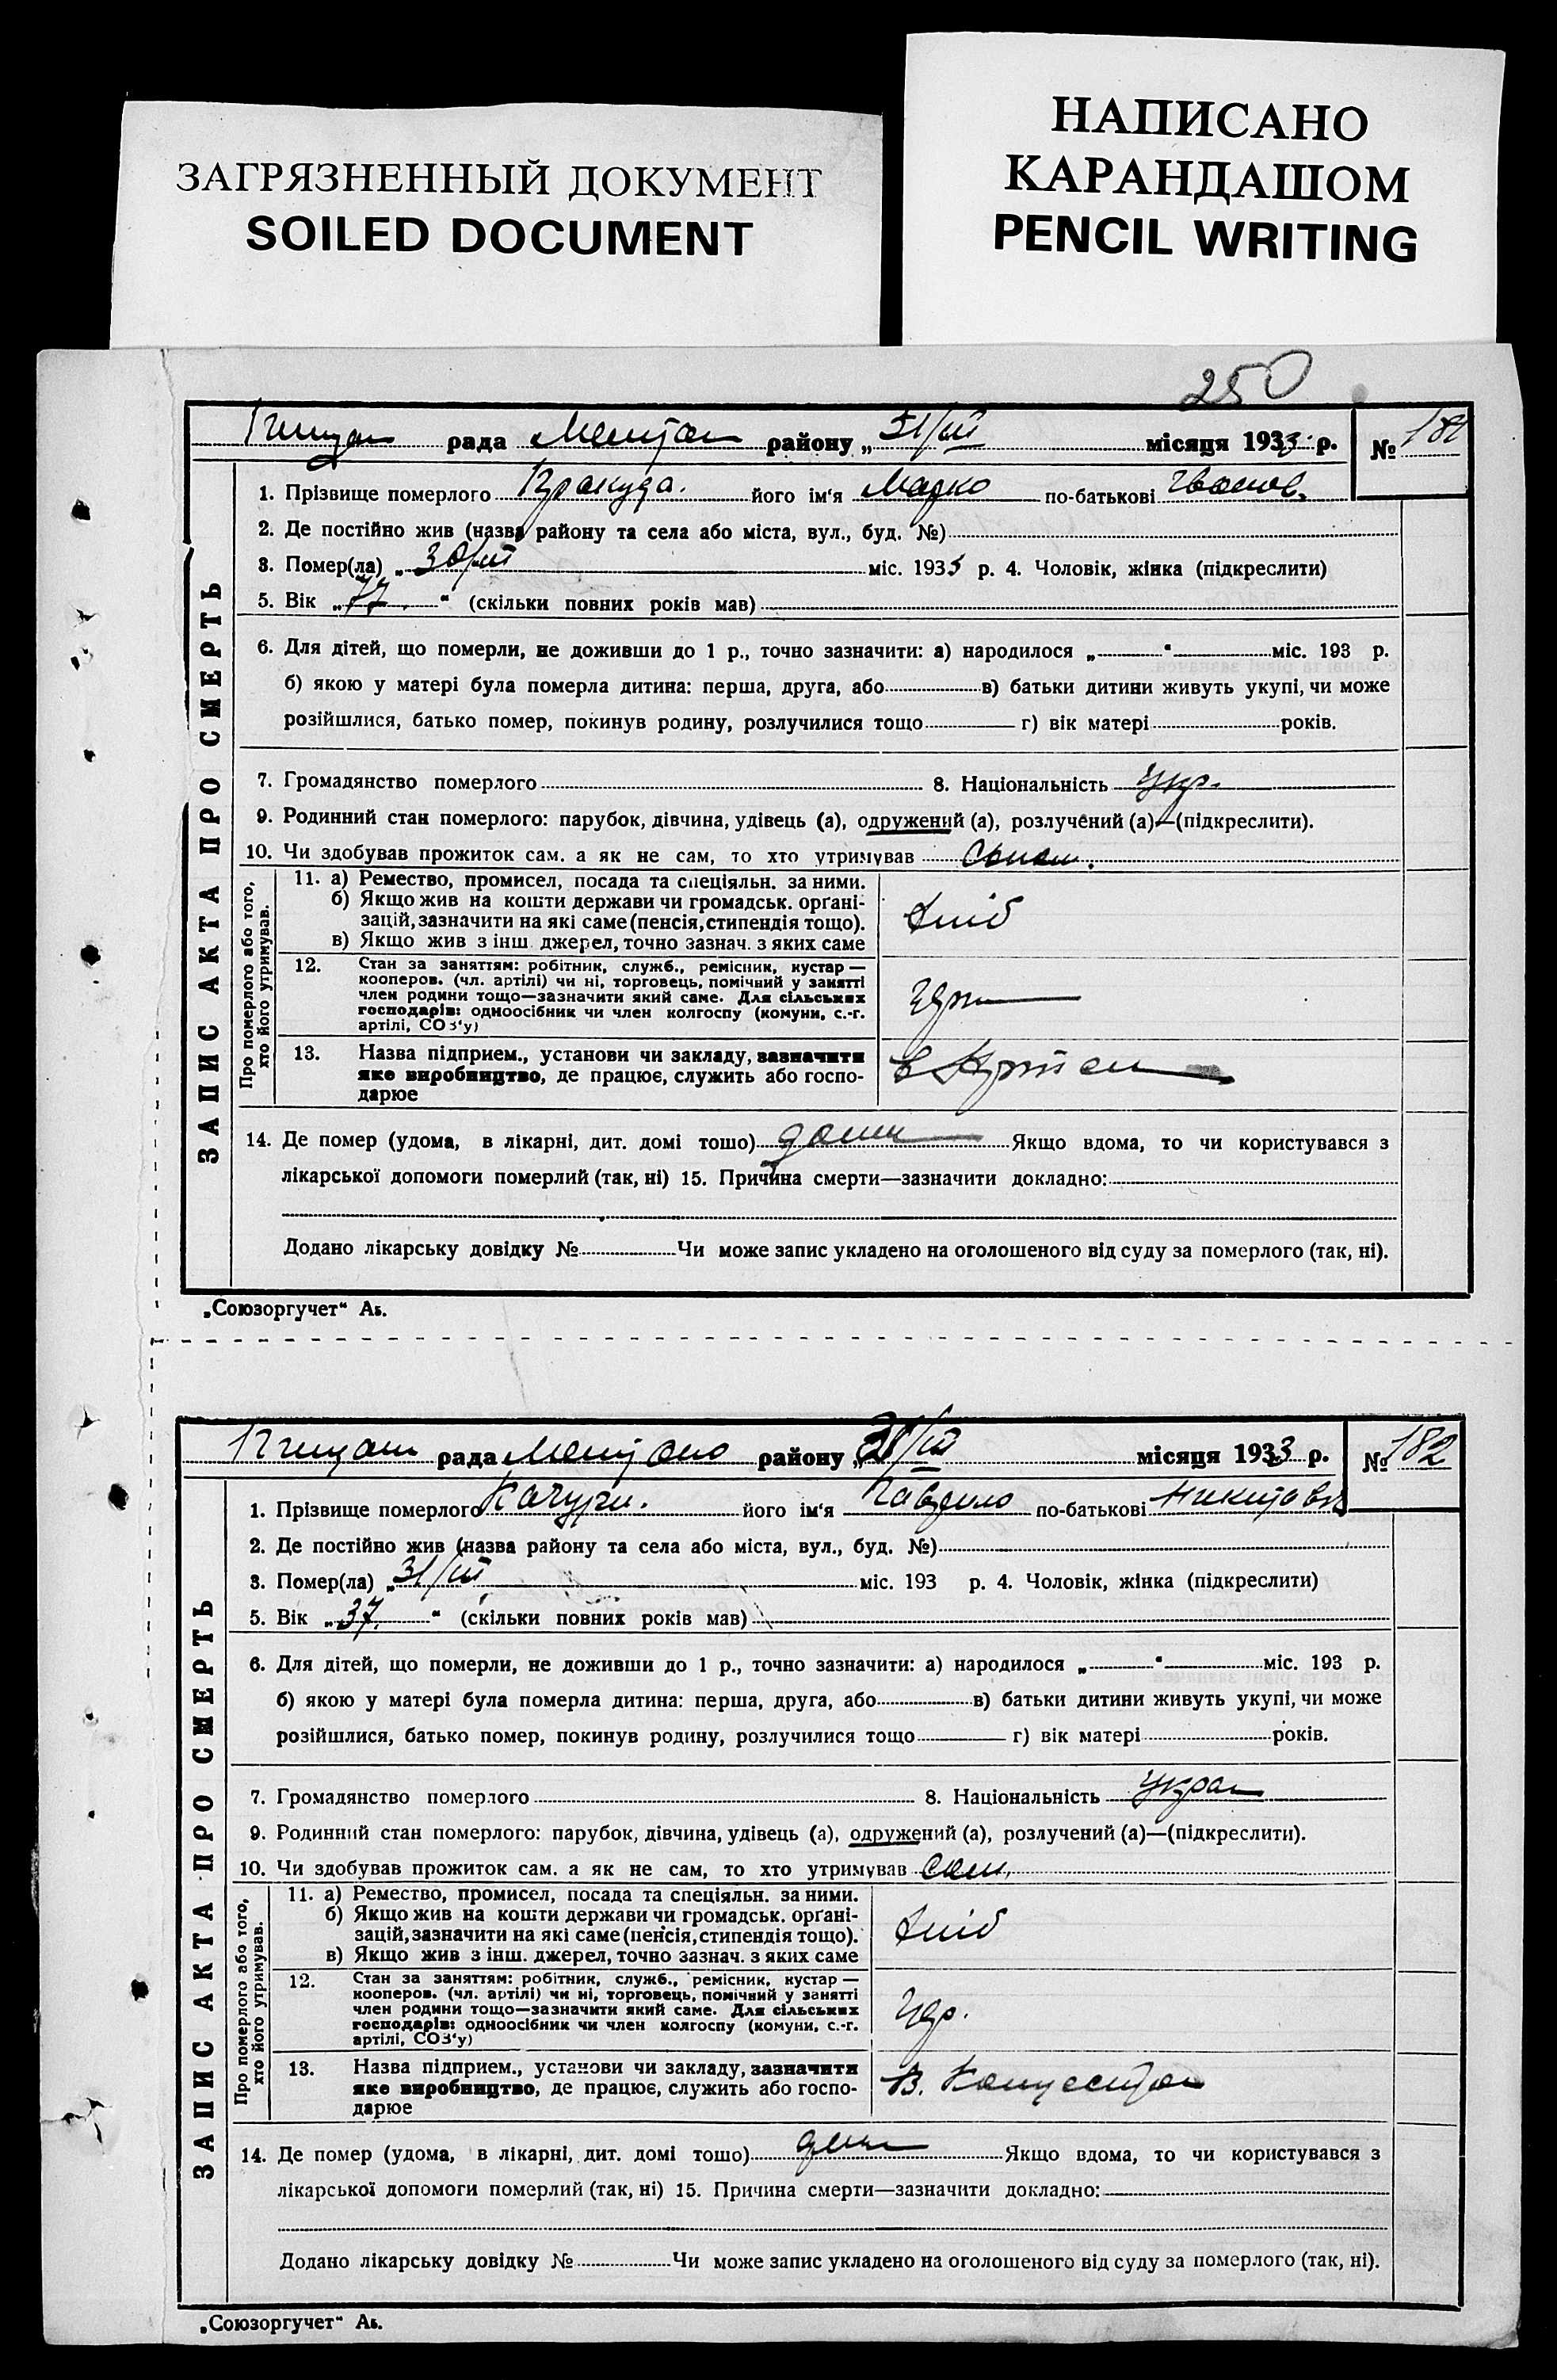 ЗАГРЯЗНЕННЫЙ ДОКУМЕНТ
SOILED DOCUMENT
НАПИСАНО
КАРАНДАШОМ
PENCIL WRITING
250
рада району „31/III місяця 1933 р. № 181
ЗАПИС АКТА ПРО СМЕРТЬ
1. Прізвище померлого його ім'я Марко по-батькові
2. Де постійно жив (назва району та села або міста, вул., буд. №)
3. Помер(ла) „30/III міс. 1933 р. 4. Чоловік, жінка (підкреслити)
5. Вік „77“ (скільки повних років мав)
6. Для дітей, що померли, не доживши до 1 р., точно зазначити: а) народилося „ “ міс. 193 р.
б) якою у матері була померла дитина: перша, друга, або в) батьки дитини живуть укупі, чи може
розійшлися, батько помер, покинув родину, розлучилися тощо г) вік матері років.
7. Громадянство померлого 8. Національність Укр.
9. Родинний стан померлого: парубок, дівчина, удівець (а), одружений (а), розлучений (а)—(підкреслити).
10. Чи здобував прожиток сам. а як не сам, то хто утримував
Про померлого або того, хто його утримував.
11. а) Ремество, промисел, посада та спеціяльн. за ними.
б) Якщо жив на кошти держави чи громадськ. орґані-
зацій, зазначити на які саме (пенсія, стипендія тощо).
в) Якщо жив з інш джерел, точно зазнач. з яких саме
хліб
12. Стан за заняттям: робітник, служб., ремісник, кустар —
кооперов. (чл. артілі) чи ні, торговець, помічний у занятті
член родини тощо—зазначити який саме. Для сільських
господарів: одноосібник чи член колгоспу (комуни, с.-г.
артілі, СОЗ'у)
13. Назва підприєм., установи чи закладу, зазначити
яке виробництво, де працює, служить або госпо-
дарює
14. Де помер (удома, в лікарні, дит. домі тощо) дома Якщо вдома, то чи користувався з
лікарської допомоги померлий (так, ні) 15. Причина смерти—зазначити докладно:
Додано лікарську довідку № Чи може запис укладено на оголошеного від суду за померлого (так, ні).
„Союзоргучет“ Аь.
рада району „31/III місяця 1933 р. № 182
ЗАПИС АКТА ПРО СМЕРТЬ
1. Прізвище померлого його ім'я Гаврило по-батькові Никитович
2. Де постійно жив (назва району та села або міста, вул., буд. №)
3. Помер(ла) „31/III міс. 193 р. 4. Чоловік, жінка (підкреслити)
5. Вік „37.“ (скільки повних років мав)
6. Для дітей, що померли, не доживши до 1 р., точно зазначити: а) народилося „ “ міс. 193 р.
б) якою у матері була померла дитина: перша, друга, або в) батьки дитини живуть укупі, чи може
розійшлися, батько помер, покинув родину, розлучилися тощо г) вік матері років.
7. Громадянство померлого 8. Національність Укра
9. Родинний стан померлого: парубок, дівчина, удівець (а), одружений (а), розлучений (а)—(підкреслити).
10. Чи здобував прожиток сам. а як не сам, то хто утримував сам.
Про померлого або того, хто його утримував.
11. а) Ремество, промисел, посада та спеціяльн. за ними.
б) Якщо жив на кошти держави чи громадськ. орґані-
зацій, зазначити на які саме (пенсія, стипендія тощо).
в) Якщо жив з інш. джерел, точно зазнач. з яких саме
хліб
12. Стан за заняттям: робітник, служб., ремісник, кустар —
кооперов. (чл. артілі) чи ні, торговець, помічний у занятті
член родини тощо—зазначити який саме. Для сільських
господарів: одноосібник чи член колгоспу (комуни, с.-г.
артілі, СОЗ'у)
13. Назва підприєм., установи чи закладу, зазначити
яке виробництво, де працює, служить або госпо-
дарює
14. Де помер (удома, в лікарні, дит. домі тощо) Якщо вдома, то чи користувався з
лікарської допомоги померлий (так, ні) 15. Причина смерти—зазначити докладно:
Додано лікарську довідку № Чи може запис укладено на оголошеного від суду за померлого (так, ні).
„Союзоргучет“ Аь.